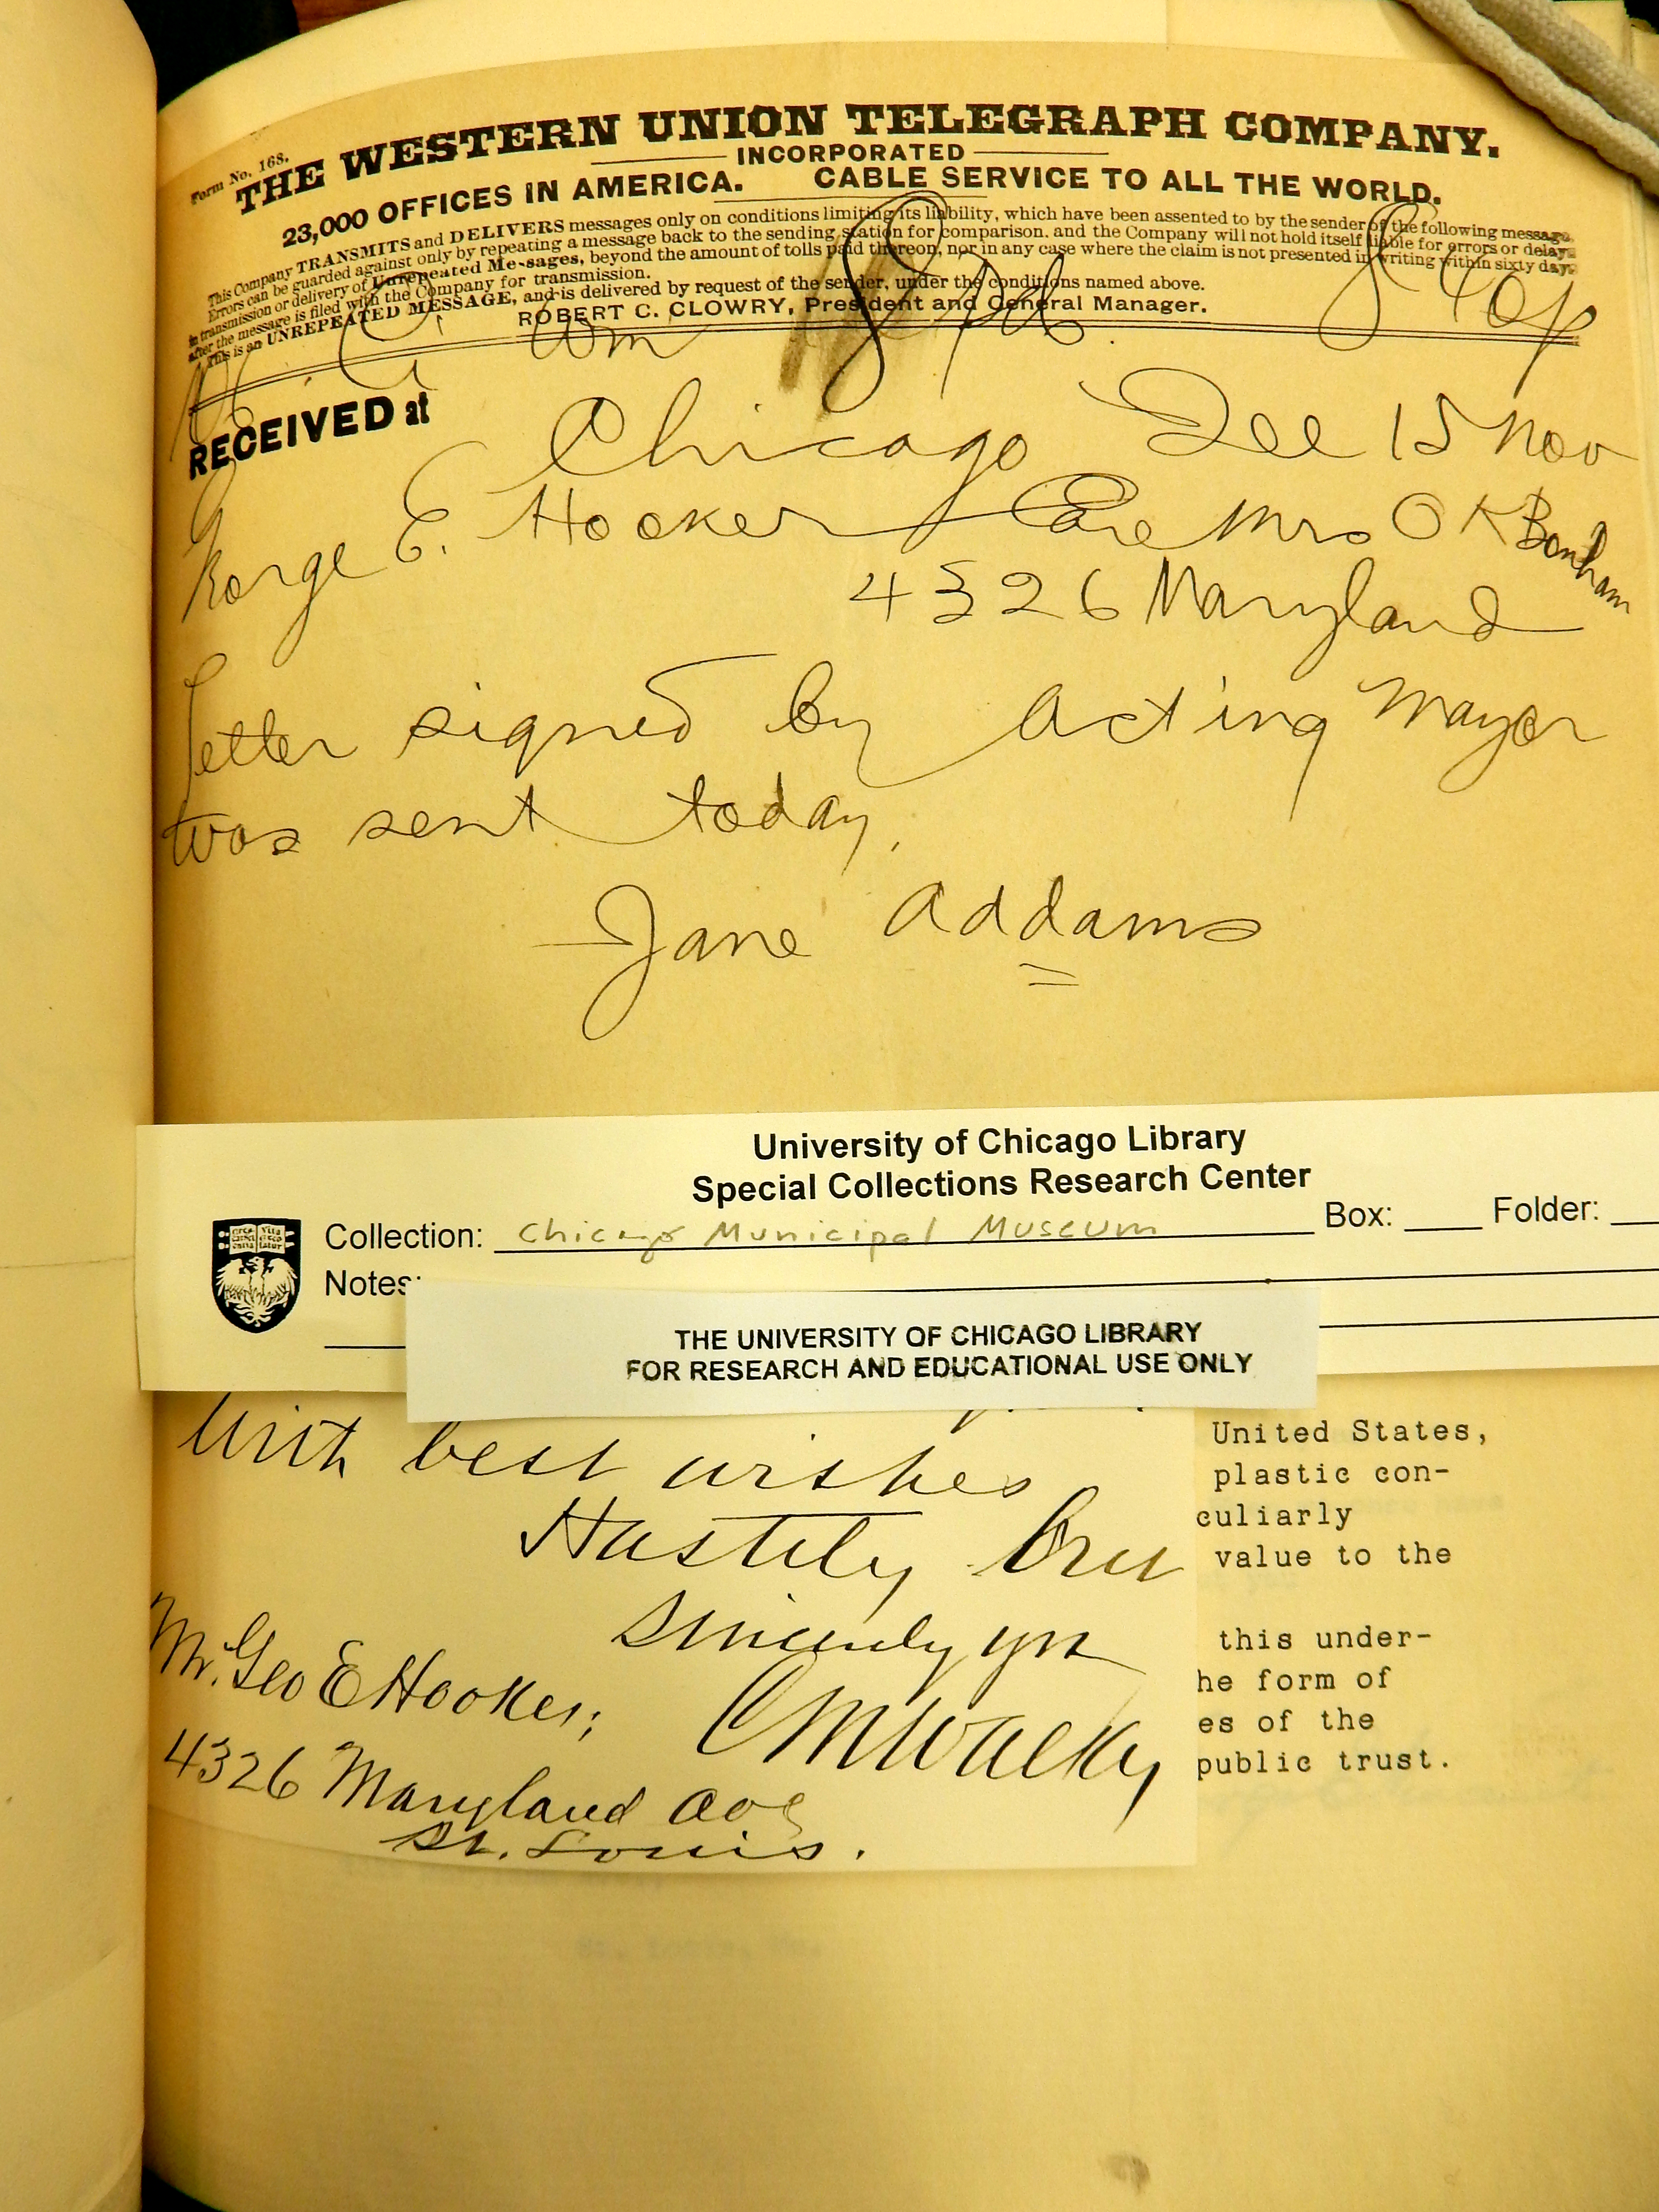 Form No. 168.
THE WESTERN UNION TELEGRAPH COMPANY.
INCORPORATED
23,000 OFFICES IN AMERICA. CABLE SERVICE TO ALL THE WORLD.
This Company TRANSMITS and DELIVERS messages only on conditions limiting its liability, which have been assented to by the sender of the following message.
Errors can be guarded against only by repeating a message back to the sending station for comparison, and the Company will not hold itself liable for errors or delays
in transmission or delivery of Unrepeated Messages, beyond the amount of tolls paid thereon, nor in any case where the claim is not presented in writing within sixty days
after the message is filed with the Company for transmission.
This is an UNREPEATED MESSAGE, and is delivered by request of the sender, under the conditions named above.
ROBERT C. CLOWRY, President and General Manager.
RECEIVED at
Chicago Dec 15 Nov
George E. Hooker Care Mrs O K Bonham
4326 Maryland
Letter signed by acting Mayor
was sent today.
Jane Addams
University of Chicago Library
Special Collections Research Center
Collection: Chicago Municipal Museum Box: Folder:
Notes:
THE UNIVERSITY OF CHICAGO LIBRARY
FOR RESEARCH AND EDUCATIONAL USE ONLY
With best wishes
Hastily
Sincerely yrs
Mr. Geo E Hooker;
4326 Maryland Ave
St. Louis.
United States,
plastic con-
culiarly
value to the
this under-
he form of
es of the
public trust.